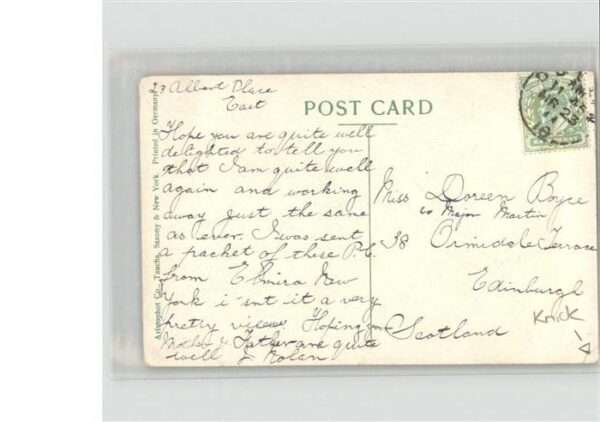 23 Albert Place
East
POST CARD
Hope you are quite well
delighted to tell you
that I am quite well
again and working
away just the same
as ever. I was sent
a packet of these P.C.
from Elmira New
York i'snt it a very
pretty view. Hoping
Mother & Father are quite
well J Nolan
Miss Doreen Boyce
c/o Major Martin
38 Ormidale Terrace
Edinburgh
Scotland
Knick
Aristophot Co., Taucha, Saxony & New York. Printed in Germany.